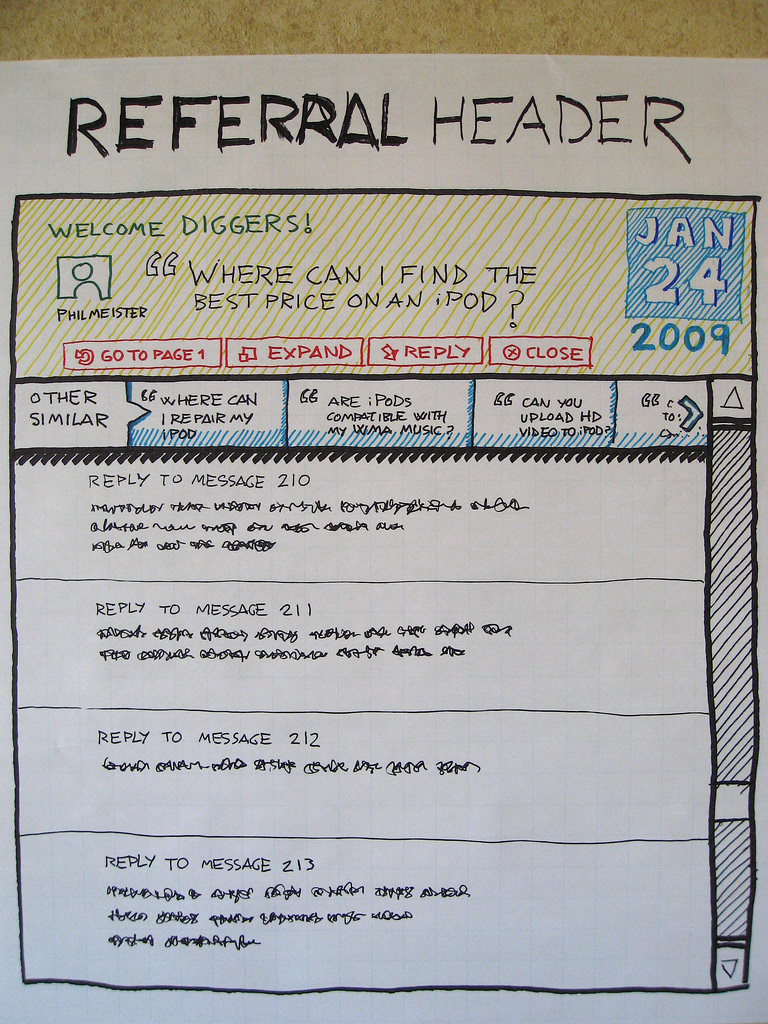 REFERRAL HEADER
WELCOME DIGGERS!
JAN
24
2009
PHILMEISTER
“ WHERE CAN I FIND THE
BEST PRICE ON AN iPOD?
GO TO PAGE 1 EXPAND REPLY CLOSE
OTHER
SIMILAR
“ WHERE CAN
I REPAIR MY
iPOD
“ ARE iPODS
COMPATIBLE WITH
MY WMA MUSIC?
“ CAN YOU
UPLOAD HD
VIDEO TO iPOD?
“ C
TO
REPLY TO MESSAGE 210
REPLY TO MESSAGE 211
REPLY TO MESSAGE 212
REPLY TO MESSAGE 213